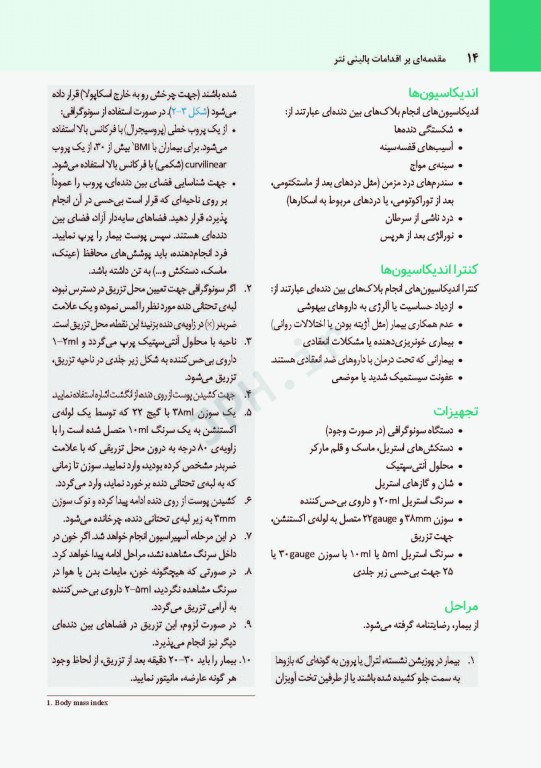 ۱۴ مقدمه‌ای بر اقدامات بالینی نتر
اندیکاسیون‌ها
اندیکاسیون‌های انجام بلاک‌های بین دنده‌ای عبارتند از:
• شکستگی دنده‌ها
• آسیب‌های قفسه‌سینه
• سینه‌ی مواج
• سندرم‌های درد مزمن (مثل دردهای بعد از ماستکتومی،
بعد از توراکوتومی، یا دردهای مربوط به اسکارها)
• درد ناشی از سرطان
• نورالژی بعد از هرپس
کنترااندیکاسیون‌ها
کنترا اندیکاسیون‌های انجام بلاک‌های بین دنده‌ای عبارتند از:
• ازدیاد حساسیت یا آلرژی به داروهای بیهوشی
• عدم همکاری بیمار (مثل آژیته بودن یا اختلالات روانی)
• بیماری خونریزی‌دهنده یا مشکلات انعقادی
• بیمارانی که تحت درمان با داروهای ضد انعقادی هستند.
• عفونت سیستمیک شدید یا موضعی
تجهیزات
• دستگاه سونوگرافی (در صورت وجود)
• دستکش‌های استریل، ماسک و قلم مارکر
• محلول آنتی‌سپتیک
• شان و گازهای استریل
• سرنگ استریل ۲۰ml و داروی بی‌حس‌کننده
• سوزن ۳۸mm و ۲۲gauge متصل به لوله‌ی اکستنشن،
جهت تزریق
• سرنگ استریل ۵ml یا ۱۰ml با سوزن ۳۰gauge یا
۲۵ جهت بی‌حسی زیر جلدی
مراحل
از بیمار، رضایتنامه گرفته می‌شود.
۱. بیمار در پوزیشن نشسته، لترال یا پرون به گونه‌ای که بازوها
به سمت جلو کشیده شده باشند یا از طرفین تخت آویزان
شده باشند (جهت چرخش رو به خارج اسکاپولا) قرار داده
می‌شود (شکل ۳-۲). در صورت استفاده از سونوگرافی:
• از یک پروب خطی (پروسیجرال) با فرکانس بالا استفاده
می‌شود. برای بیماران با BMI¹ بیش از ۳۰، از یک پروب
curvilinear (شکمی) با فرکانس بالا استفاده می‌شود.
• جهت شناسایی فضای بین دنده‌ای، پروب را عموداً
بر روی ناحیه‌ای که قرار است بی‌حسی در آن انجام
پذیرد، قرار دهید. فضاهای سایه‌دار آزاد، فضای بین
دنده‌ای هستند. سپس پوست بیمار را پرپ نمایید.
فرد انجام‌دهنده، باید پوشش‌های محافظ (عینک،
ماسک، دستکش و...) به تن داشته باشد.
۲. اگر سونوگرافی جهت تعیین محل تزریق در دسترس نبود،
لبه‌ی تحتانی دنده مورد نظر را لمس نموده و یک علامت
ضربدر (×) در زاویه‌ی دنده بزنید؛ این نقطه، محل تزریق است.
۳. ناحیه با محلول آنتی‌سپتیک پرپ می‌گردد و ۱-۲ml
داروی بی‌حس‌کننده به شکل زیر جلدی در ناحیه تزریق،
تزریق می‌شود.
۴. جهت کشیدن پوست از روی دنده، از انگشت اشاره استفاده نمایید.
۵. یک سوزن ۳۸ml با گیج ۲۲ که توسط یک لوله‌ی
اکستنشن به یک سرنگ ۱۰ml متصل شده است را با
زاویه‌ی ۸۰ درجه به درون محل تزریقی که با علامت
ضربدر مشخص کرده بودید، وارد نمایید. سوزن تا زمانی
که به لبه‌ی تحتانی دنده برخورد نماید، وارد می‌گردد.
۶. کشیدن پوست از روی دنده ادامه پیدا کرده و نوک سوزن
۳mm به زیر لبه‌ی تحتانی دنده، چرخانده می‌شود.
۷. در این مرحله، آسپیراسیون انجام خواهد شد. اگر خون در
داخل سرنگ مشاهده نشد، مراحل ادامه پیدا خواهد کرد.
۸. در صورتی که هیچگونه خون، مایعات بدن یا هوا در
سرنگ مشاهده نگردید، ۲-۵ml داروی بی‌حس‌کننده
به آرامی تزریق می‌گردد.
۹. در صورت لزوم، این تزریق در فضاهای بین دنده‌ای
دیگر نیز انجام می‌پذیرد.
۱۰. بیمار را باید ۳۰-۲۰ دقیقه بعد از تزریق، از لحاظ وجود
هر گونه عارضه، مانیتور نمایید.
1. Body mass index